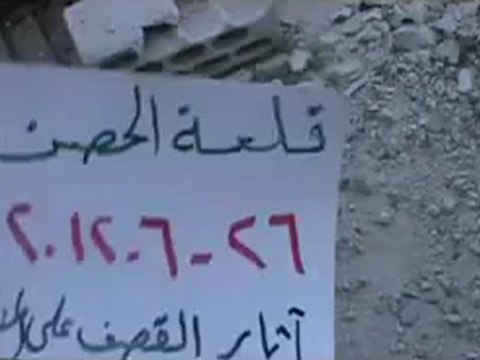 قلعة الحصن
٢٠١٢-٦-٢٦
آثار القصف على